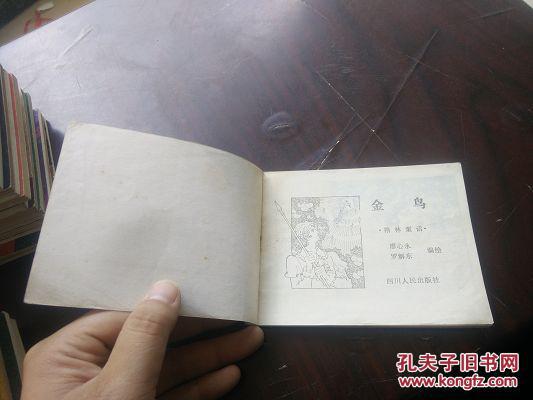 金 鸟
·格林童话·
廖心永
罗解东
编绘
四川人民出版社
孔夫子旧书网
www.kongfz.com